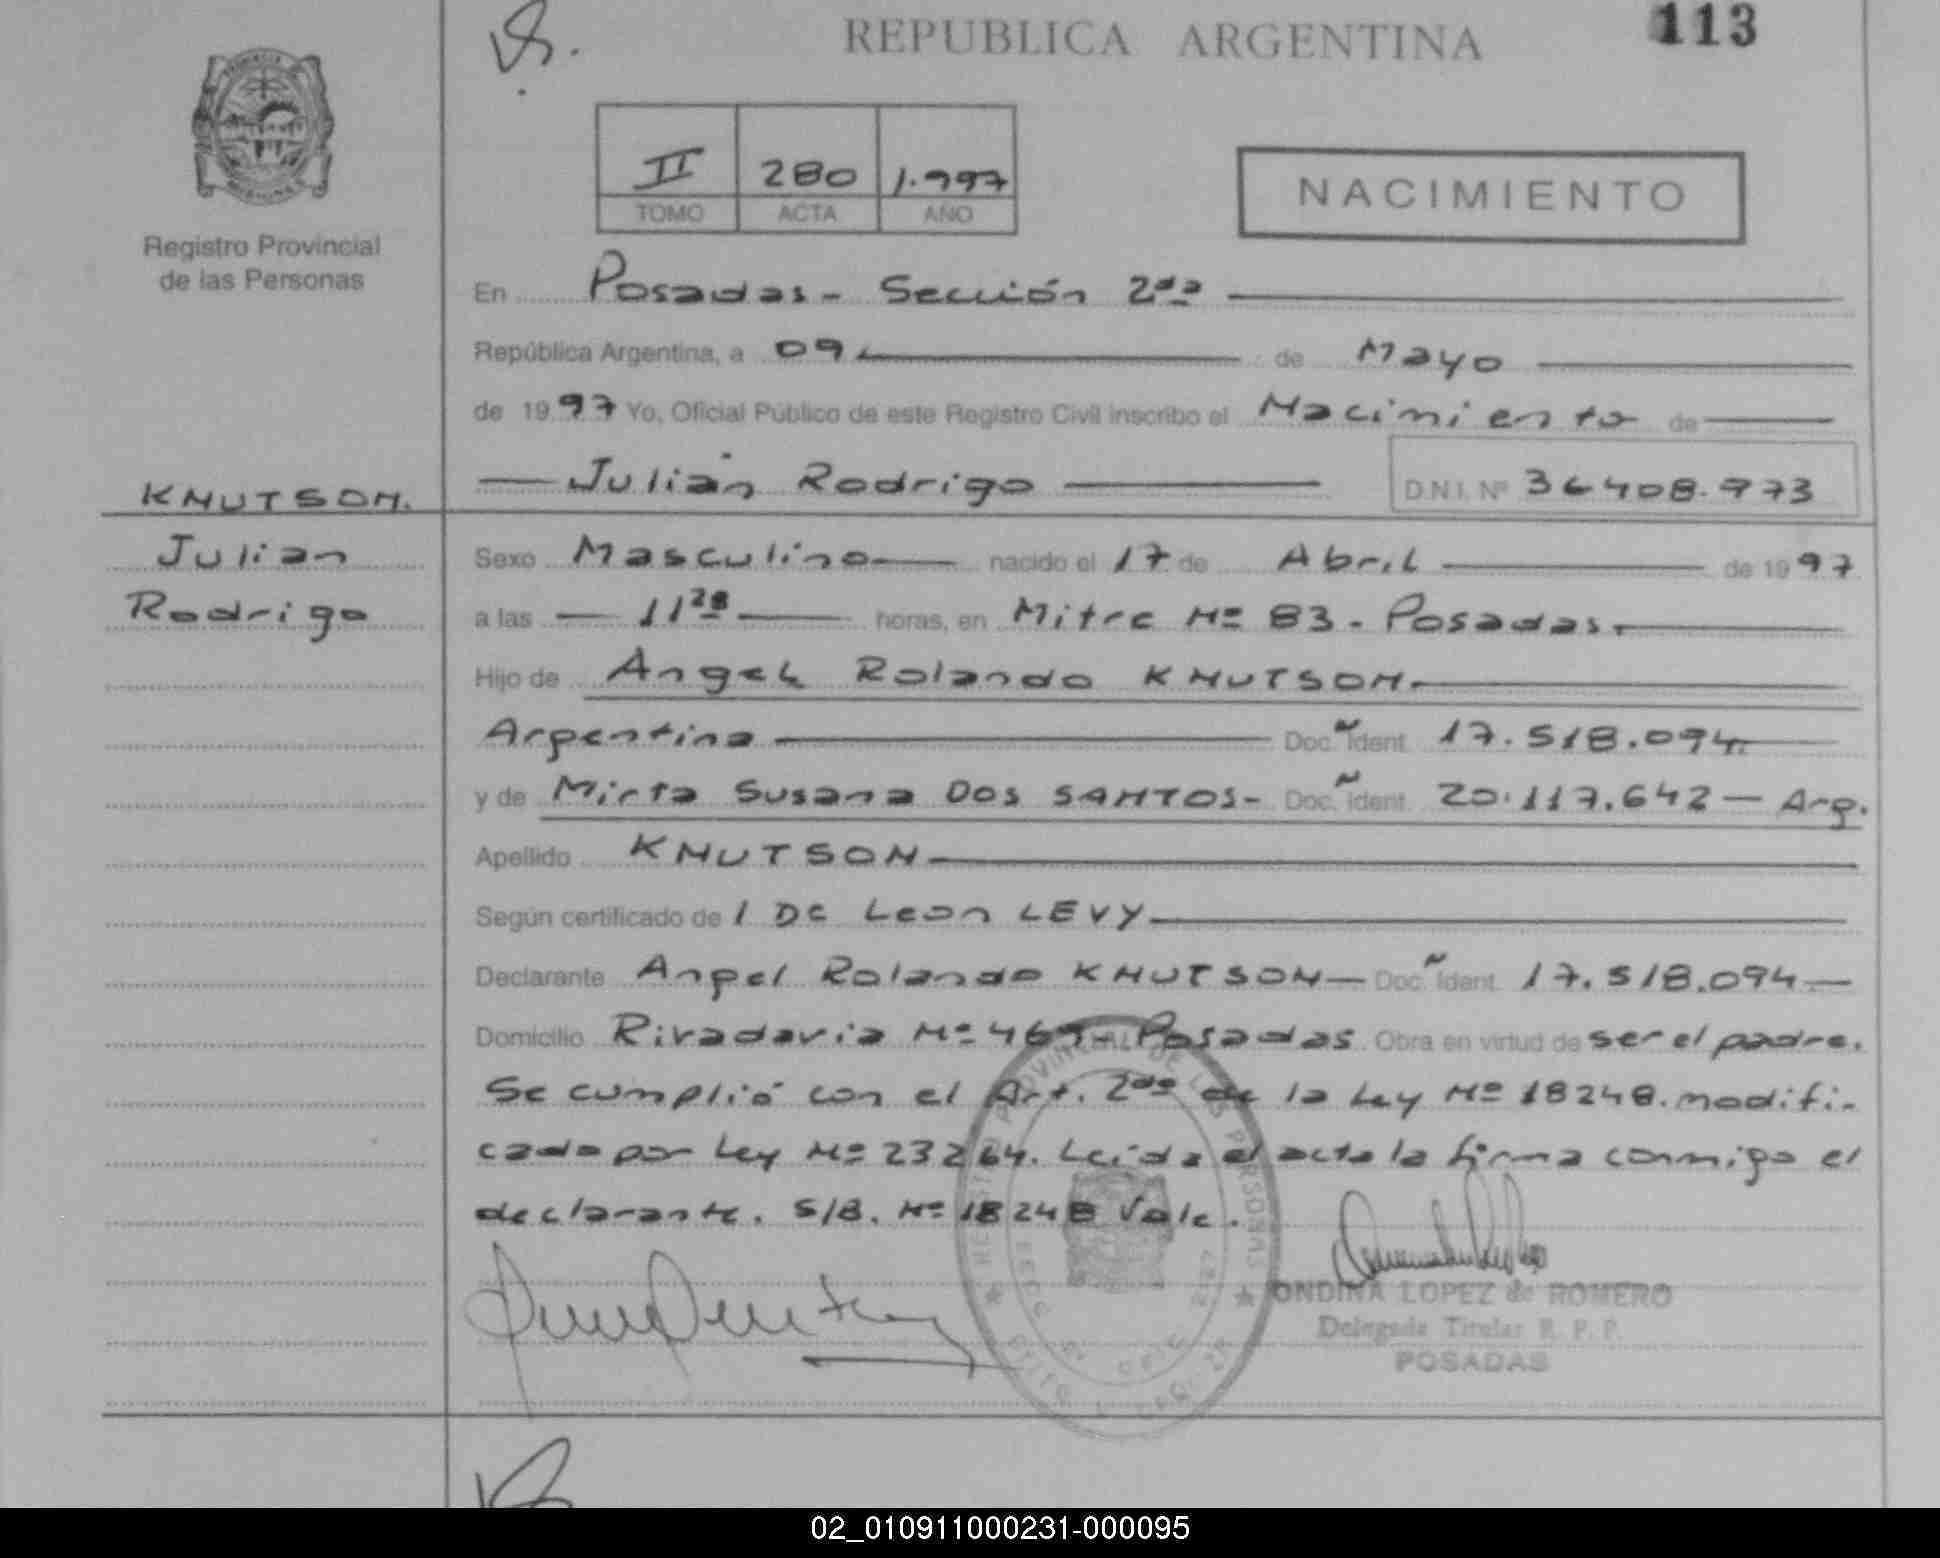 REPUBLICA ARGENTINA
113
II 280 1.997
TOMO ACTA AÑO
NACIMIENTO
Registro Provincial
de las Personas
En Posadas - Sección 2da
República Argentina, a 09 de Mayo
de 1997 Yo, Oficial Público de este Registro Civil inscribo el Nacimiento de
Julián Rodrigo D.N.I. Nº 36408.973
KNUTSON.
Julian
Rodrigo
Sexo Masculino nacido el 17 de Abril de 1997
a las 11 28 horas, en Mitre Nº 83 - Posadas.
Hijo de Angel Rolando KNUTSON.
Argentina Doc. Ident. 17.518.094
y de Mirta Susana DOS SANTOS - Doc. Ident. 20.117.642 - Arg.
Apellido KNUTSON
Según certificado de / De Leon LEVY
Declarante Angel Rolando KNUTSON - Doc. Ident. 17.518.094
Domicilio Rivadavia Nº 469 - Posadas Obra en virtud de ser el padre.
Se cumplió con el Art. 2do de la Ley Nº 18248. modifi-
cado por Ley Nº 23264. Leída el acta la firma conmigo el
declarante. S/B. Nº 18248 Vale.
REGISTRO PROVINCIAL DE LAS PERSONAS
ONDINA LOPEZ de ROMERO
Delegada Titular R. P. P.
POSADAS
02_010911000231-000095